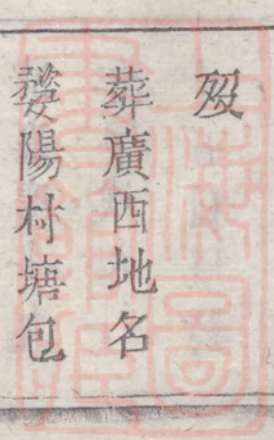 歿
葬廣西地名
婺陽村塘包